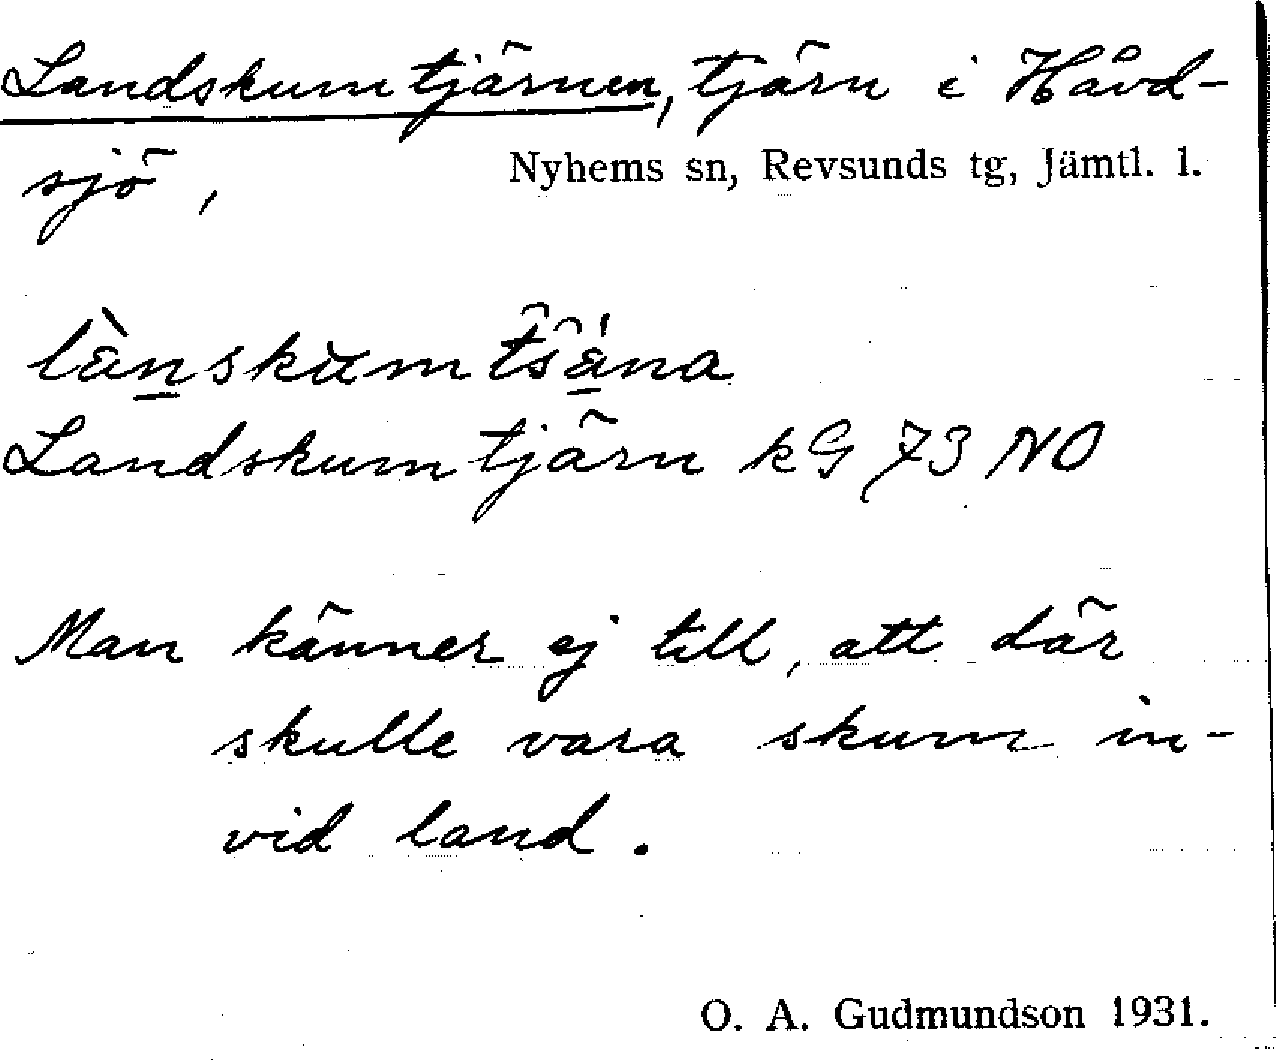 Landskumtjärnen, tjärn i Håvd-
sjö, Nyhems sn, Revsunds tg, Jämtl. l.
lànskùm t͡s͡ána
Landskumtjärn kG 73 NO
Man känner ej till, att där
skulle vara skum in-
vid land.
O. A. Gudmundson 1931.